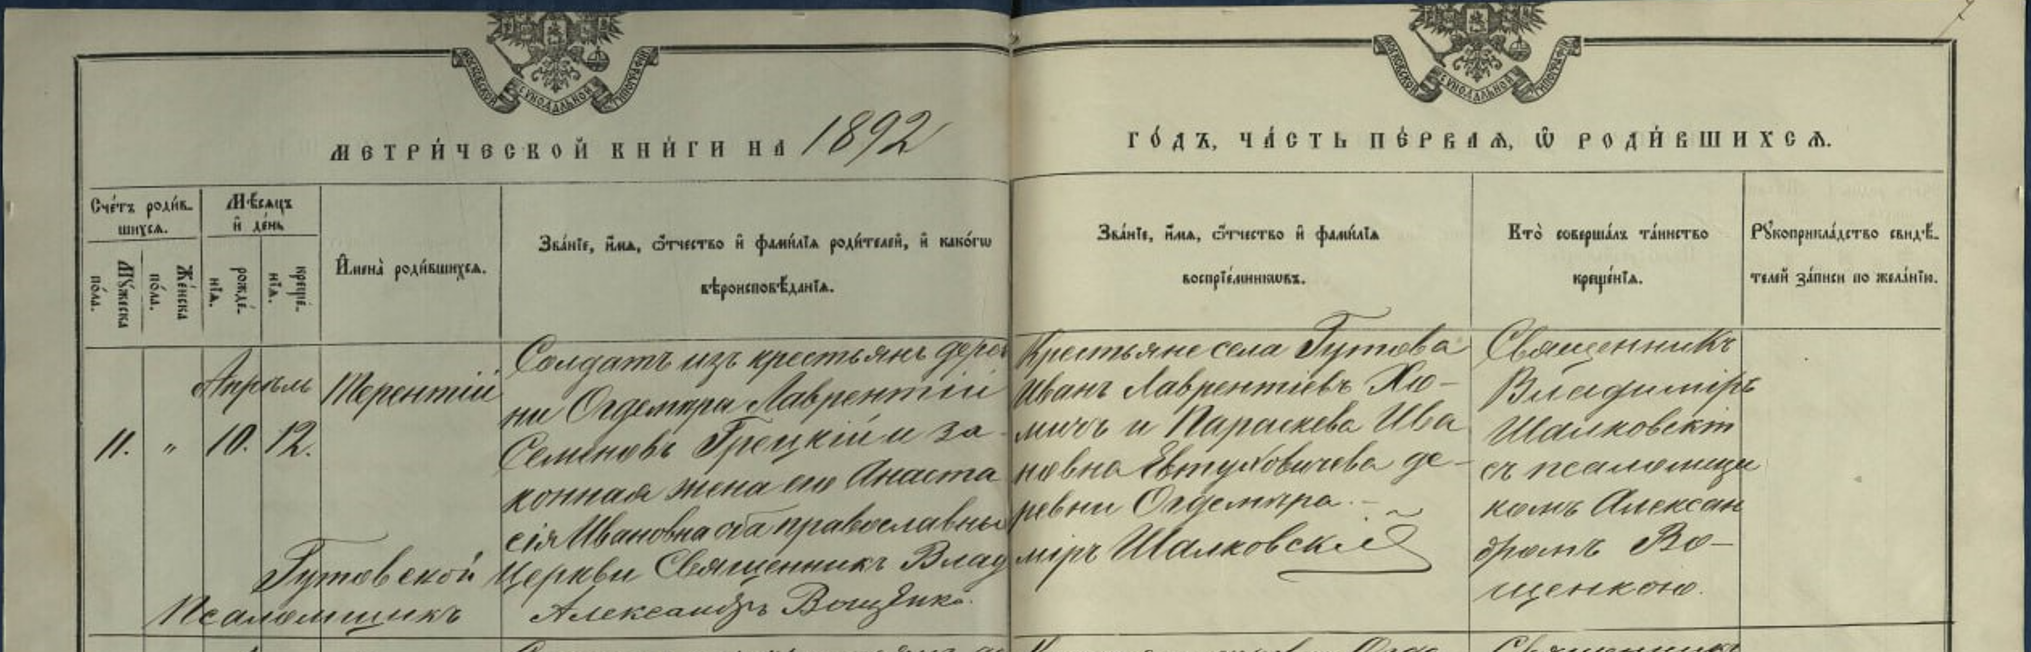 МОСКОВСКОЙ СѴНОДАЛЬНОЙ ТИПОГРАФІИ
МОСКОВСКОЙ СѴНОДАЛЬНОЙ ТИПОГРАФІИ
МЕТРИ́ЧЕСКОЙ КНИ́ГИ НА 1892
ГО́ДЪ, ЧА́СТЬ ПЕ́РВАѦ, Ѡ҆ РОДИ́ВШИХСѦ.
Сче́тъ роди́в-
шихсѧ.
Мѣ́сѧцъ
и҆ де́нь
Мꙋ́жеска
по́ла.
Же́нска
по́ла.
рожде́-
нїѧ.
креще́-
нїѧ.
И҆мена̀ роди́вшихсѧ.
Зва́нїе, и҆́мѧ, ѻ҆́тчество и҆ фами́лїѧ роди́телей, и҆ како́гѡ
вѣроисповѣ́данїѧ.
Зва́нїе, и҆́мѧ, ѻ҆́тчество и҆ фами́лїѧ
воспрїе́мникѡвъ.
Кто̀ соверша́лъ та́инство
креще́нїѧ.
Рꙋкоприкла́дство свидѣ́-
телей за́писи по жела́нїю.
11. „ Апрѣль 10. 12.
Терентій
Солдатъ изъ крестьянъ дерев
ни Огдемира Лаврентій
Семеновъ Грецкій и за-
конная жена его Анаста
сія Ивановна оба православны
Крестьяне села Гутова
Иванъ Лаврентіевъ Хо-
мичъ и Параскева Ива
новна Евтуховичева де-
ревни Огдемира.-
Священникъ
Владиміръ
Шалковскій
съ псаломщи
комъ Алексан
дромъ Во-
щенкою.
Гутовской Церкви Священникъ Влади
міръ Шалковскій
Псаломщикъ Александръ Вощенко.